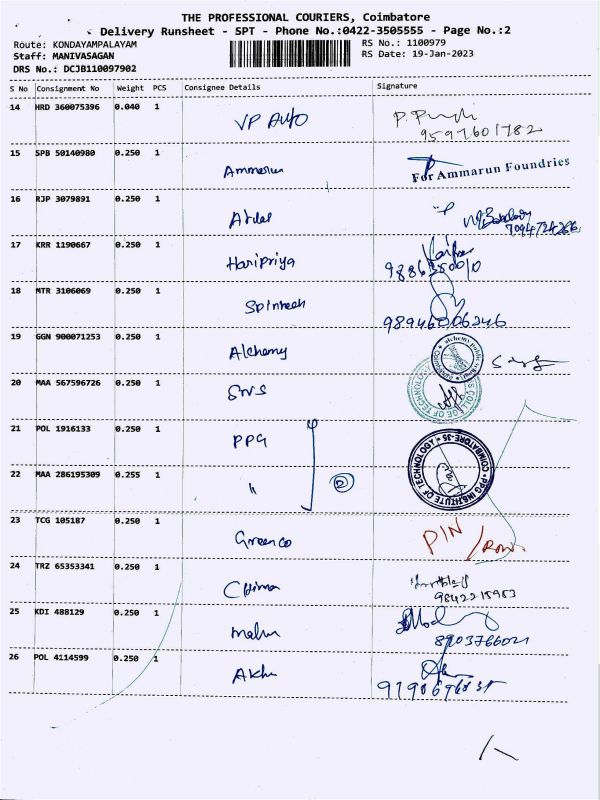 THE PROFESSIONAL COURIERS, Coimbatore
Delivery Runsheet - SPT - Phone No.:0422-3505555 - Page No.:2
Route: KONDAYAMPALAYAM RS No.: 1100979
Staff: MANIVASAGAN RS Date: 19-Jan-2023
DRS No.: DCJB110097902
S No Consignment No Weight PCS Consignee Details Signature
14 HRD 360075396 0.040 1 VP Auto
9597601782
15 SPB 50140980 0.250 1 Ammarun For Ammarun Foundries
16 RJP 3079891 0.250 1
7094724266
17 KRR 1190667 0.250 1 Haripriya
9886350010
18 MTR 3106069 0.250 1 Spintech
98946006246
19 GGN 900071253 0.250 1 Alchemy
20 MAA 567596726 0.250 1 SNS
COLLEGE OF TECHNOLOGY
21 POL 1916133 0.250 1 PPG
PPG INSTITUTE OF TECHNOLOGY COIMBATORE-35
22 MAA 286195309 0.255 1 " 2
23 TCG 105187 0.250 1 Greenco PIN
24 TRZ 65353341 0.250 1 Chima
9842215953
25 KDI 488129 0.250 1
8903766021
26 POL 4114599 0.250 1